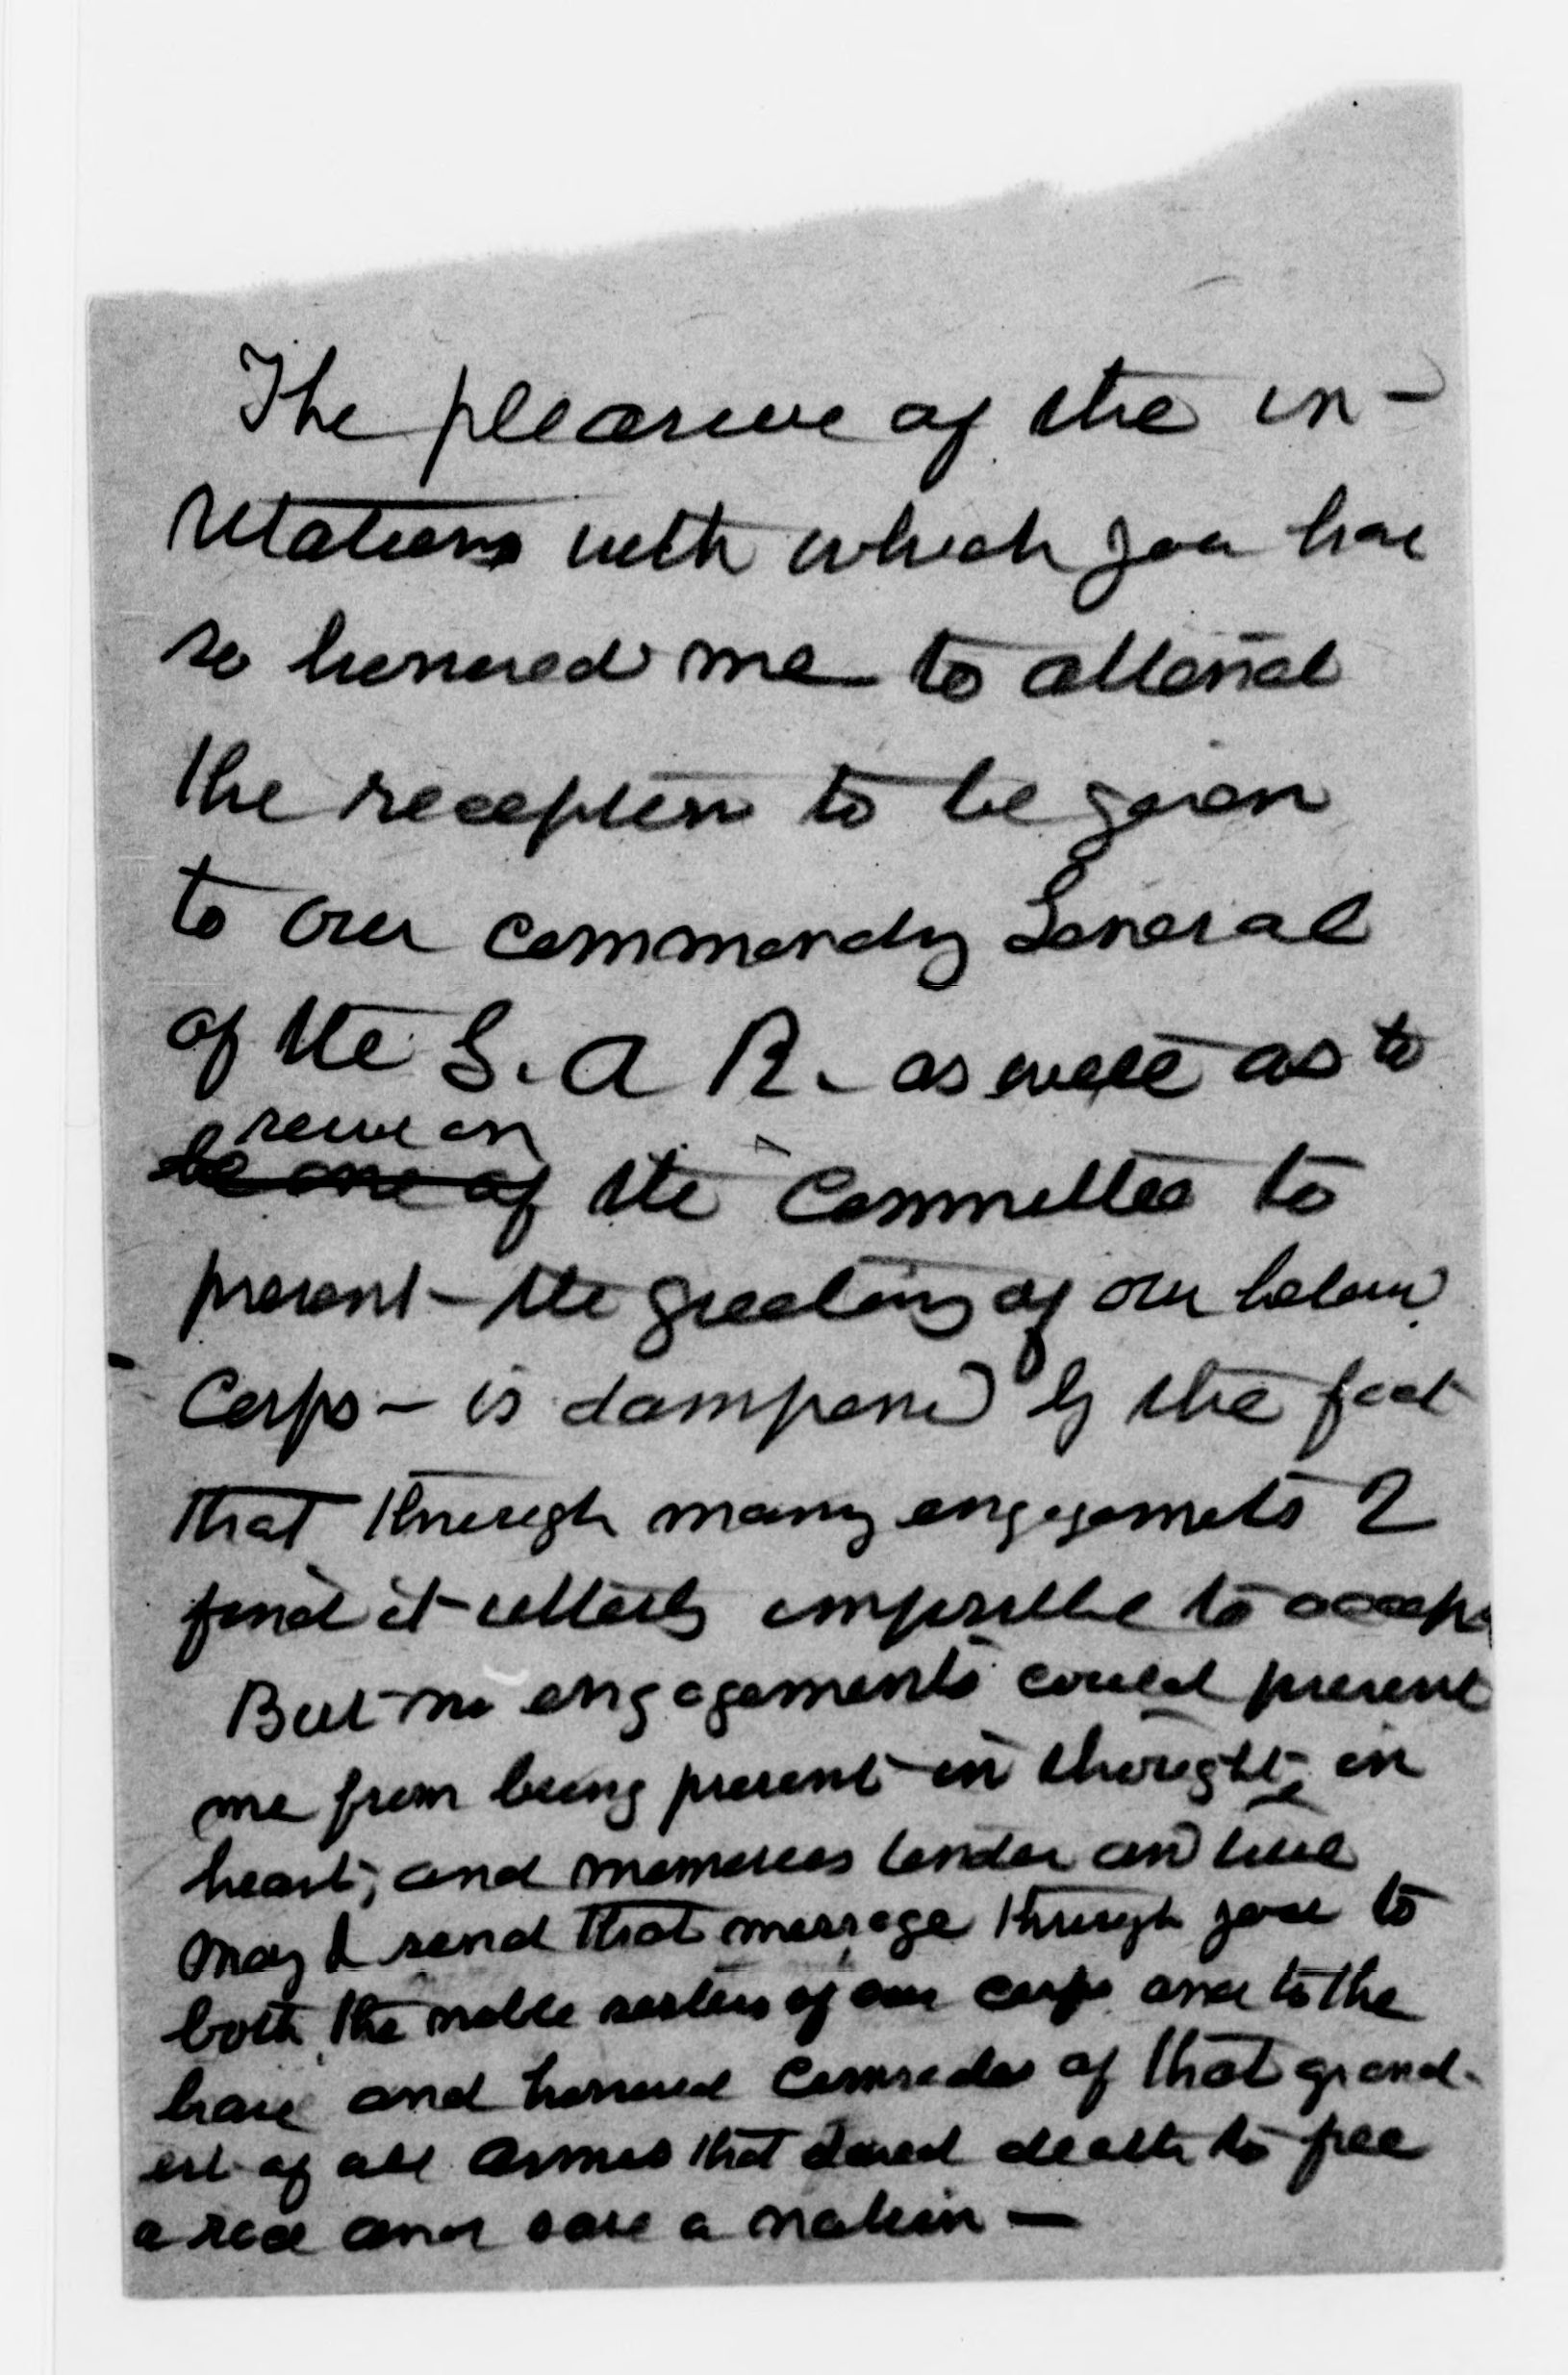 The pleasure of the in-
vitations with which you have
so honored me to attend
the reception to be given
to our Commanding General
of the G. A R. - as well as to
serve on
be one of the Committee to
present - the greeting of our beloved
Corps - is dampened by the fact
that through many engagements I
find it utterly impossible to accept
But no engagements could prevent
me from being present in thought, in
heart, and memories tender and true
May I send that message through you to
both the noble sisters of our corps and to the
brave and honored Comrades of that grand-
est of all armies that dared death to free
a race and save a nation -